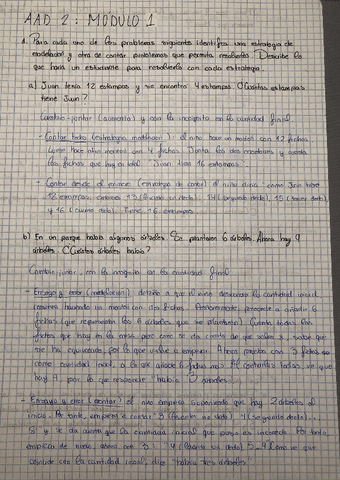 AAD 2: MÓDULO 1
1. Para cada uno de los problemas siguientes identifica una estrategia de
modelado y otra de contar problemas que permita resolverlos. Describe lo
que haría un estudiante para resolverlo con cada estrategia.
a) Juan tenía 12 estampas y se encontró 4 estampas. ¿Cuántas estampas
tiene Juan?
Cambio-juntar (aumento) y con la incógnita en la cantidad final
- Contar todo (estrategia modelización): el niño hace un montón con 12 fichas,
luego hace otro montón con 4 fichas. Junta los dos montones y cuenta
las fichas que hay en total. Juan tiene 16 estampas.
- Contar desde el primero (estrategia de conteo) el niño diría como Juan tiene
12 estampas, entonces 13 (levanta un dedo), 14 (segundo dedo), 15 (tercer dedo)
y 16 (cuarto dedo). Tiene 16 estampas.
b) En un parque había algunos árboles. Se plantaron 6 árboles. Ahora hay 9
árboles. ¿Cuántos árboles había?
Cambio juntar, con la incógnita en la cantidad
- Ensayo y error (modelización) debido a que el niño desconoce la cantidad inicial,
haciendo un montón con dos fichas. Posteriormente, procede a añadir 6
fichas (que representan los 6 árboles que se plantaron) Cuenta todas las
fichas que hay en la pero se da cuenta de que salen 8, sabe que
se ha equivocado, por lo que vuelve a empezar. Ahora prueba con 3 fichas
como cantidad inicial, a la que añade 6 fichas más. Al contarlas todas, ve que
hay 9, por lo que responde había 3 árboles.
- Ensayo y error (contar) el niño empieza suponiendo que hay 2 árboles al
inicio. Por tanto, empieza a contar 3 (levanta un dedo) 4 (segundo dedo)...
8 y se da cuenta que la cantidad inicial que puso es incorrecta. Por tanto,
empieza de nuevo, ahora con 3 4 (levanta un dedo) 5 ve que
coincide con la cantidad final, dice "había tres árboles".